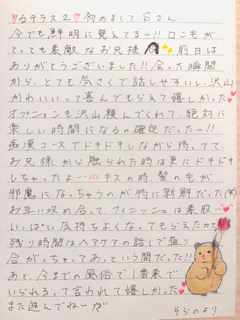 るテラス2♥初めましてSさん
今でも鮮明に覚えてるー!!ロン毛が
とっても素敵なお兄様 前日は
ありがとうございました!!会った瞬間
から、とても気さくで話しやすいし、沢山
かわいいって喜んでもらえて嬉しかった♥
オプションも沢山頼んでくれて、絶対に
楽しい時間になるの確定だったー!!
痴漢コースでドキドキしながら待ってて、
お兄様から触られた時は更にドキドキ
しちゃったよ…!!!キスの時髪の毛が
邪魔になっちゃうのが特に新鮮だった(笑)
お互い攻め合って、フィニッシュは素股
いっぱい気持ちよくなってもらえたかな
残り時間はヘアケアの話しで盛り
合がっちゃってあっという間だった!!
あと、今までの風俗で1番来て
いられるって言われて嬉しかった♥
また遊んでねーが
そらのより